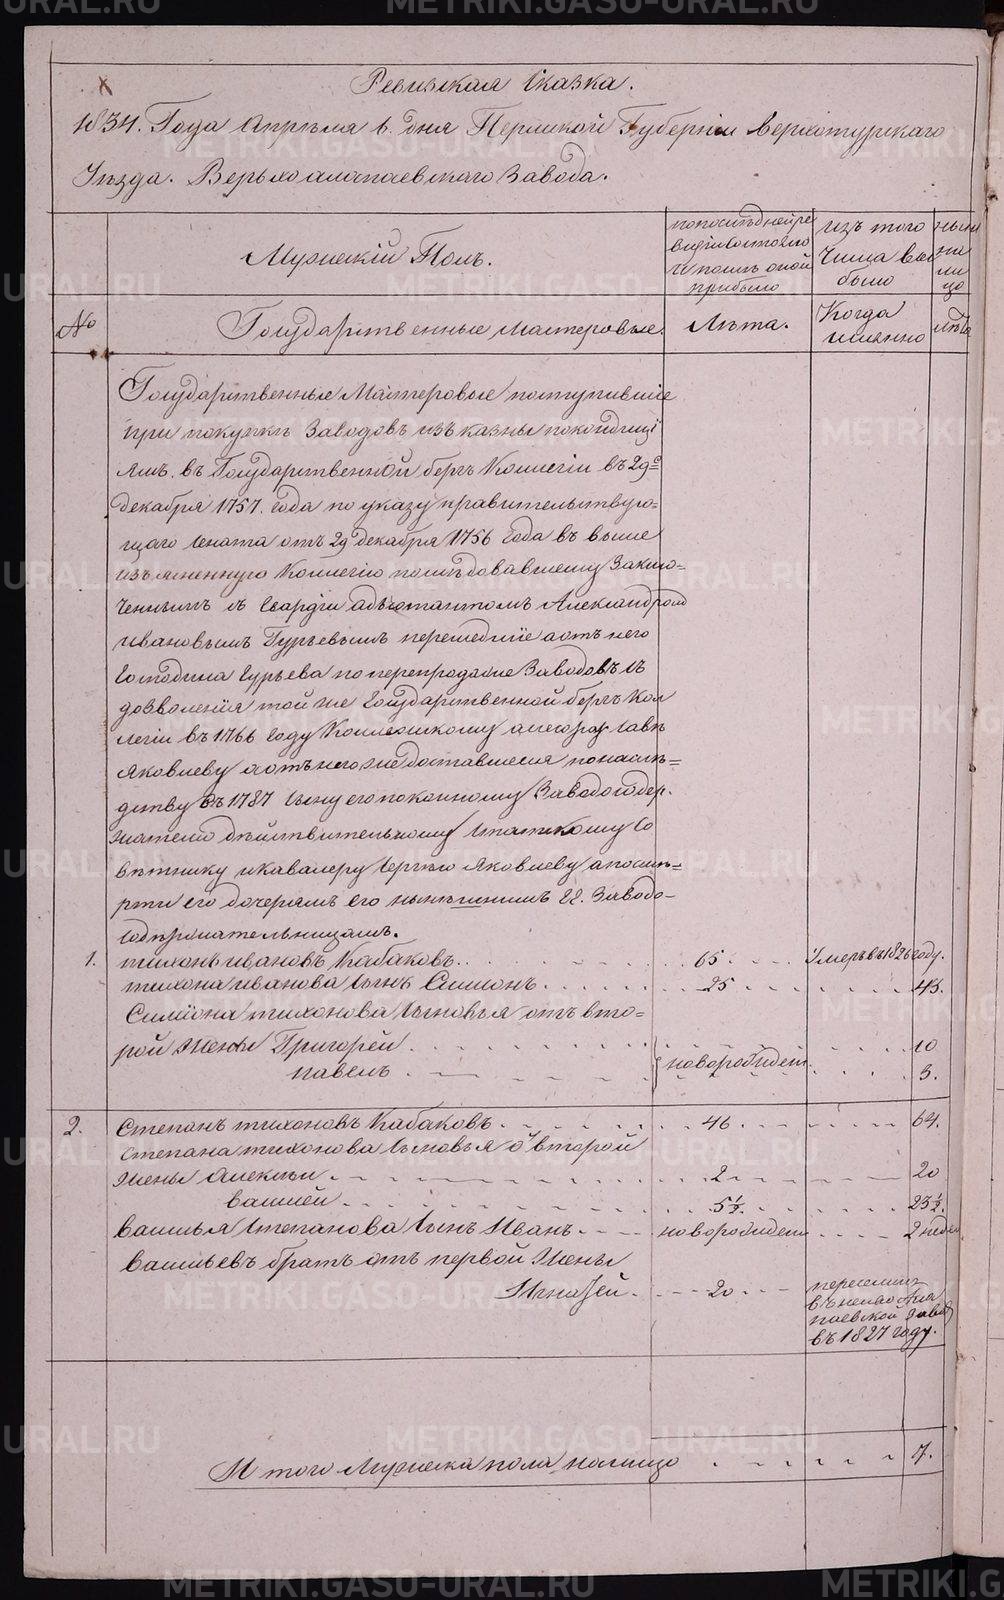 Ревизская Сказка.
1834. Года Апреля 6. дня Пермской Губернии Верхотурскаго
Уезда. Верьхоалапаевскаго Завода.
Мужеский Полъ.
по последней ре
визии состояло
и после оной
прибыло
изъ того
Числа вы
было
ныне
на
ли
цо
№
Государственные мастеровые.
Лета.
Когда
именно
лета
Государственные Мастеровые поступившие
при покупке Заводовъ изъ казны по кондици
ямъ въ Государственной бергъ Коллегии въ 29е
декабря 1757. года по указу правительствую=
щаго Сената отъ 29 декабря 1756 года въ выше
изъясненную Коллегию последовавшему Заклю=
ченнымъ съ Гвардии адъютантомъ Александромъ
Ивановымъ Гурьевымъ перешедшие а отъ него
Господина Гурьева по перепродаже Заводовъ съ
дозволения той же Государственной бергъ Кол
легии въ 1766 году Коллежскому асесору Савве
Яковлеву а отъ него же доставшиеся по насле=
дству въ 1787 сыну его покойному Заводосодер.
жателю действительному Статскому Со
ветнику и кавалеру Сергею Яковлеву а по сме=
рти его дочерямъ его нынешнимъ гг. Заводо-
содержательницамъ.
1. Тихонъ Ивановъ Кабаковъ. 65 Умеръ въ 1826 году.
Тихона Иванова сынъ Симионъ. 25 43.
Симиона Тихонова сыновья отъ вто=
рой Жены Григорей 10
новорожден
Павелъ 3.
2. Степанъ Тихоновъ Кабаковъ. 46 64.
Степана Тихонова сыновья о второй
Жены Алексей 2 20
Василей 5½ 23½.
Василья Степанова сынъ Иванъ. новорожден 2 недел
Васильевъ братъ отъ первой Жены
Игнатей. 20
переселенъ
въ Нейво Ала
паевской завод
въ 1827 году.
Итого Мужеска пола налицо 7.
METRIKI.GASO-URAL.RU